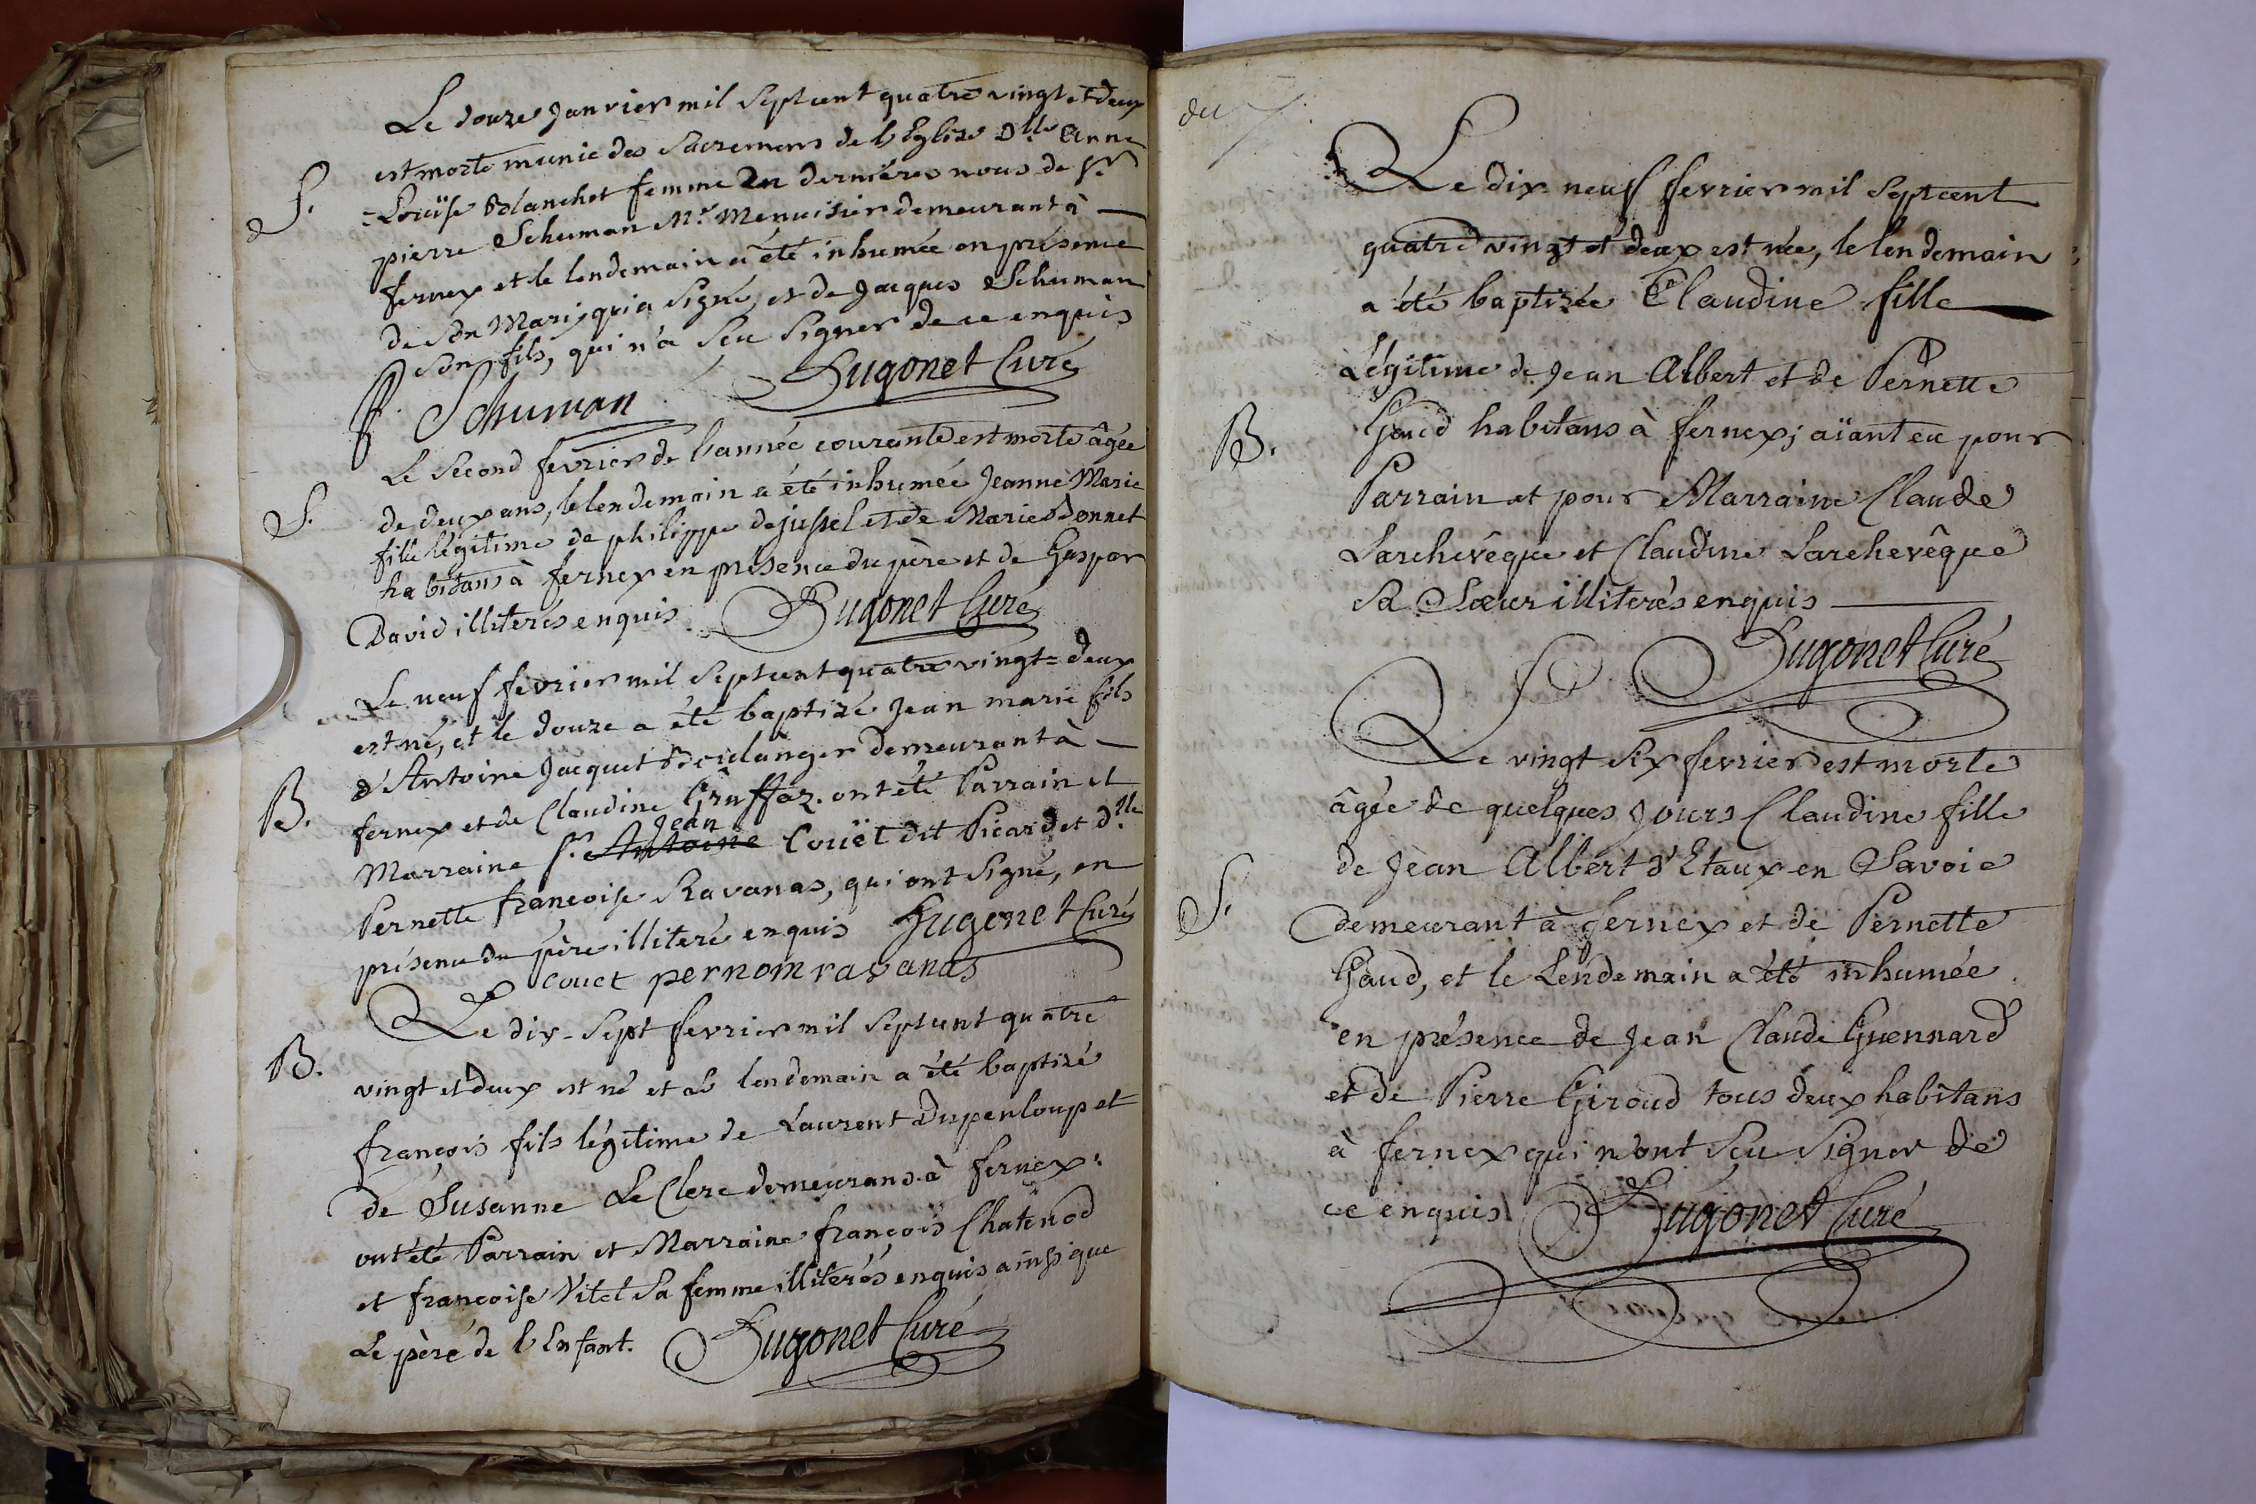 Le douze Janvier mil septcent quatre vingt et deux
S. est morte munie des Sacremens de l'Eglise Dlle Anne
=Louïse Blanchet femme en dernières nous de Sr.
pierre Schuman Mr. Menuisier demeurant à —
fernex et le lendemain a été inhumée en présence
de son Mari, qui a signé, et de Jacques Schuman
son fils, qui n'a sçu signer de ce enquis
P. Schuman Hugonet Curé
Le second fevrier de l'année courante est morte âgée
S. de deux ans, le lendemain a été inhumée Jeanne Marie
fille légitime de philippe dejussel et de Marie Donnet
habitans à fernex en présence du père et de Gaspar
David illiterés enquis. Hugonet Curé
Le neuf fevrier mil septcent quatre vingt=deux
est né, et le douze a été baptizé Jean marie fils
d'Antoine Jacquet Boulanger demeurant à —
B. fernex et de Claudine Gruffaz. ont été Parrain et
Jean
Marraine Sr. Antoine Couët dit Picard et dlle
Pernette françoise Ravanas, qui ont signé, en
présence du père illiteré enquis Hugonet Curé
couet pernom ravanas
Le dix-sept fevrier mil septcent quatre
B. vingt et deux est né et le lendemain a été baptizé
françois fils légitime de Laurent Dupenloup et
de Susanne Le Clerc demeurans à fernex:
ont été Parrain et Marraine françois Chatenod
et françoise Vitet sa femme illiterés enquis ainsi que
Le père de l'Enfant. Hugonet Curé
du
Le dix-neuf fevrier mil septcent
quatre vingt et deux est née, le lendemain
a été baptizée Claudine fille —
Légitime de Jean Albert et de Pernette
B. Gaud habitans à fernex; aïant eu pour
Parrain et pour Marraine Claude
Larchevêque et Claudine Larchevêque
sa Sœur illiterés enquis —
Hugonet Curé
Le vingt six fevrier est morte
âgée de quelques Jours Claudine fille
de Jean Albert d'Etaux en Savoie
S. demeurant à fernex et de Pernette
Gaud, et le Lendemain a été inhumée
en présence de Jean Claude Guennard
et de Pierre Giroud tous deux habitans
à fernex qui n'ont sçu signer de
ce enquis Hugonet Curé